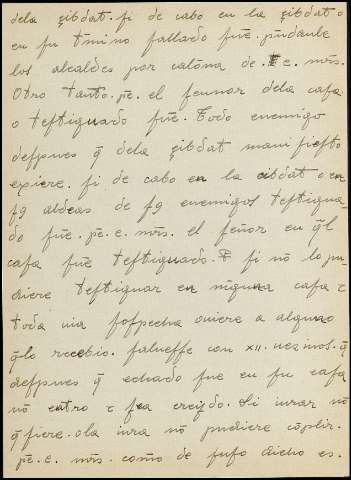 dela çibdat. si de cabo en la çibdat o
en su tmino fallado fue. pndanle
los alcaldes por calona de. e. mrs.
Otro tanto. pe. el sennor dela casa
o testiguado fue. Todo enemigo
despues q dela çibdat manifiesto
exiere. si de cabo en la cibdat o en
sg aldeas de sg enemigos testigua-
do fue. pe. e. mrs. el señor en ql
casa fue testiguado. E si no lo pu-
diere testiguar en niguna casa z
toda uia sospecha ouiere a alguno
qlo recebio. saluesse con xii. uezinos. q
despues q echado fue en su casa
no entro z sea creydo. Si iurar no
qsiere. o la iura no pudiere coplir.
pe. e. mrs. como de suso dicho es.